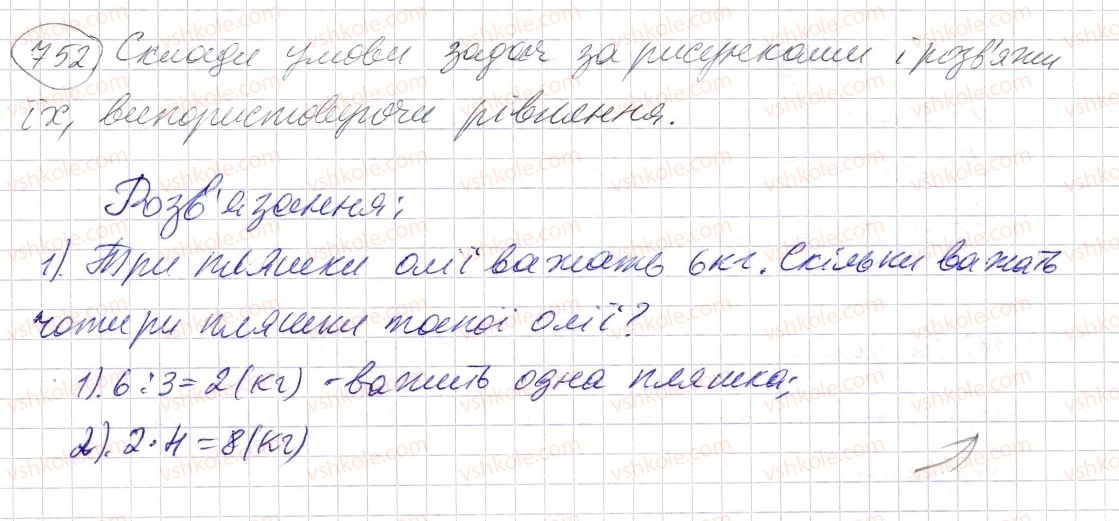 752 Склади умови задач за рисунками і розв'яжи
їх, використовуючи рівняння.
Розв'язання:
1). Три пляшки олії важать 6кг. Скільки важать
чотири пляшки такої олії?
1). 6:3=2(кг) - важить одна пляшка;
2). 2·4=8(кг)